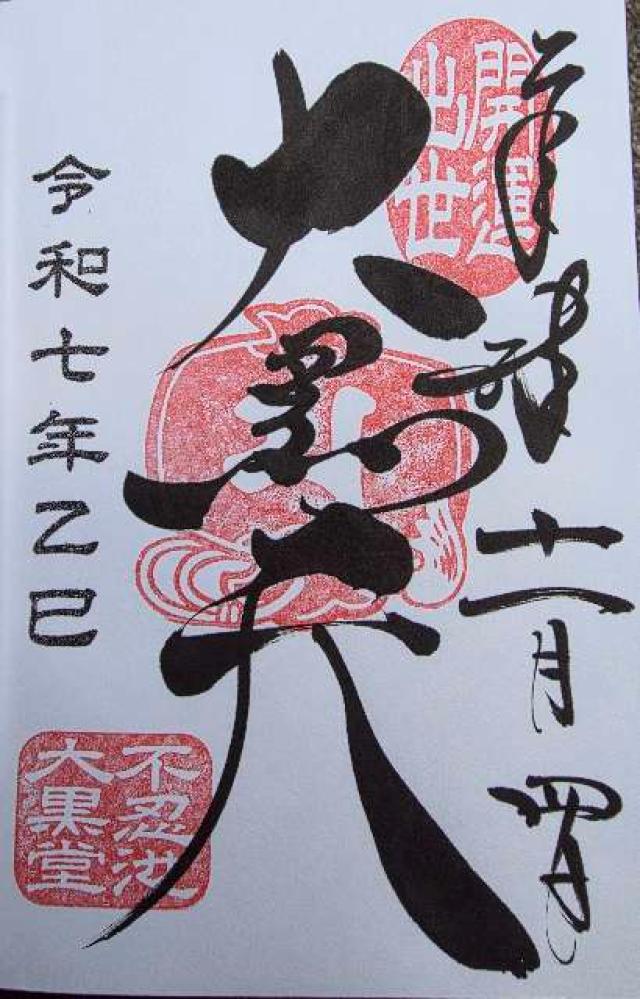 奉拝
十一月四日
開運
出世
大黒天
令和七年乙巳
不忍池
大黒堂